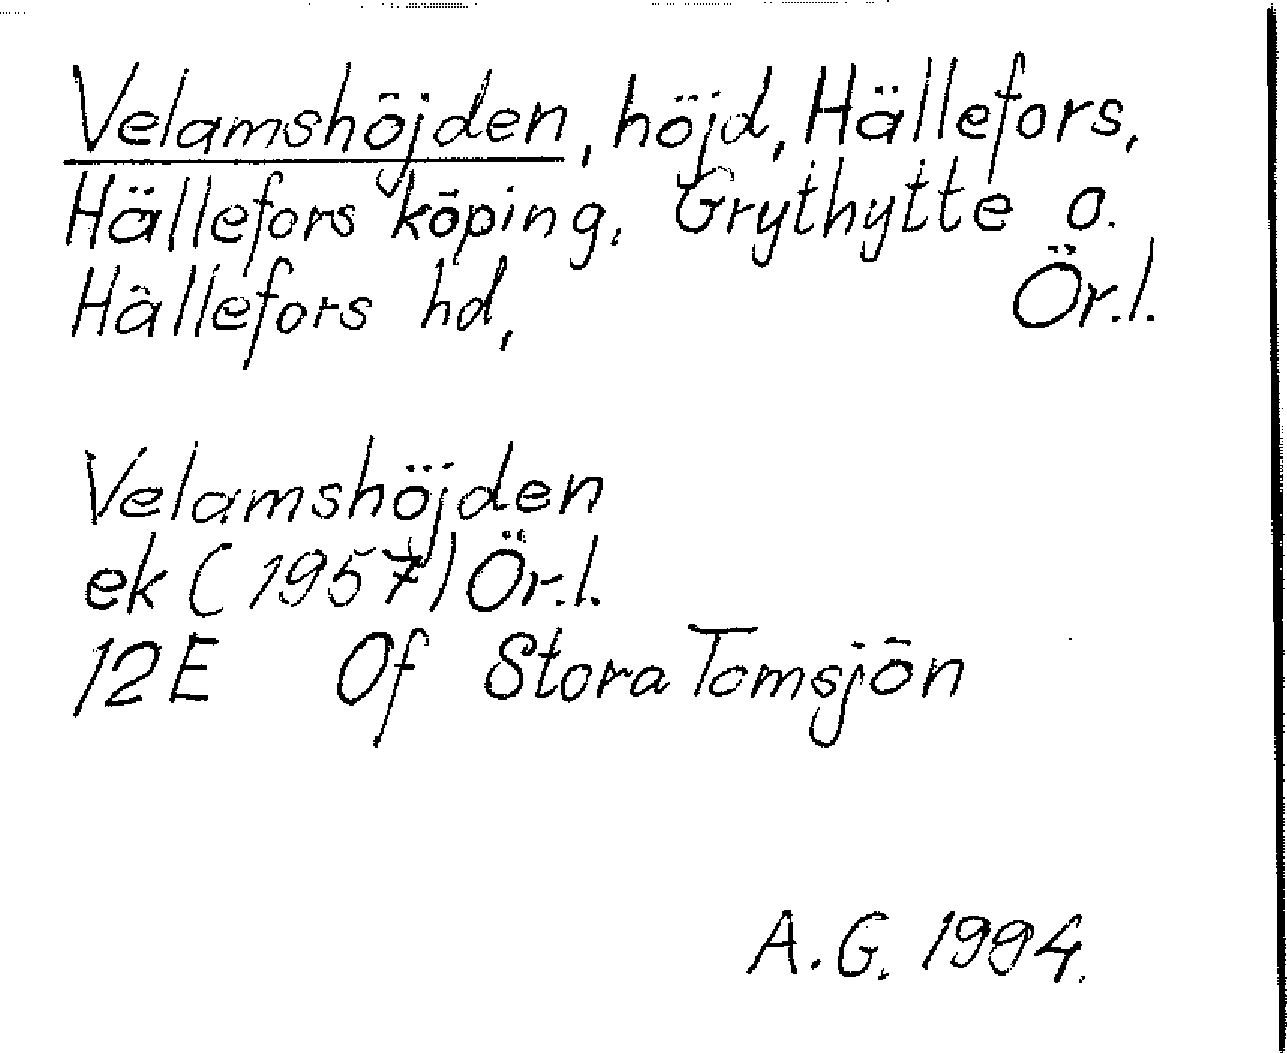 Velamshöjden, höjd, Hällefors,
Hällefors köping, Grythytte o.
Hällefors hd, Ör.l.
Velamshöjden
ek (1957) Ör.l.
12E 0f Stora Tomsjön
A.G. 1994.